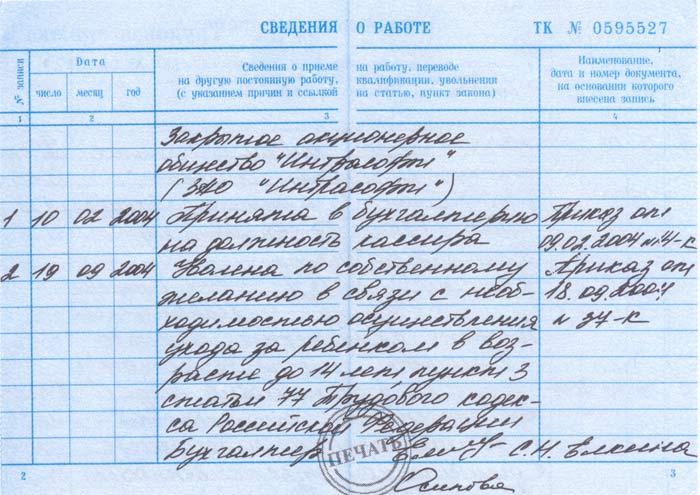 СВЕДЕНИЯ О РАБОТЕ ТК № 0595527
№ записи
Дата
число месяц год
Сведения о приеме на работу, переводе
на другую постоянную работу, квалификации, увольнении
(с указанием причин и ссылкой на статью, пункт закона)
Наименование,
дата и номер документа,
на основании которого
внесена запись
1 2 3 4
Закрытое акционерное
общество "Интрасофт"
(ЗАО "Интрасофт")
1 10 02 2004 Принята в бухгалтерию Приказ от
на должность кассира 09.02.2004 №14-к
2 19 09 2004 Уволена по собственному Приказ от
желанию в связи с необ- 18.09.2004
ходимостью осуществления № 37-к
ухода за ребенком в воз-
расте до 14 лет, пункт 3
статьи 77 Трудового кодек-
са Российской Федерации
Бухгалтер С.Н. Елкина
ПЕЧАТЬ
Осипова
2 3